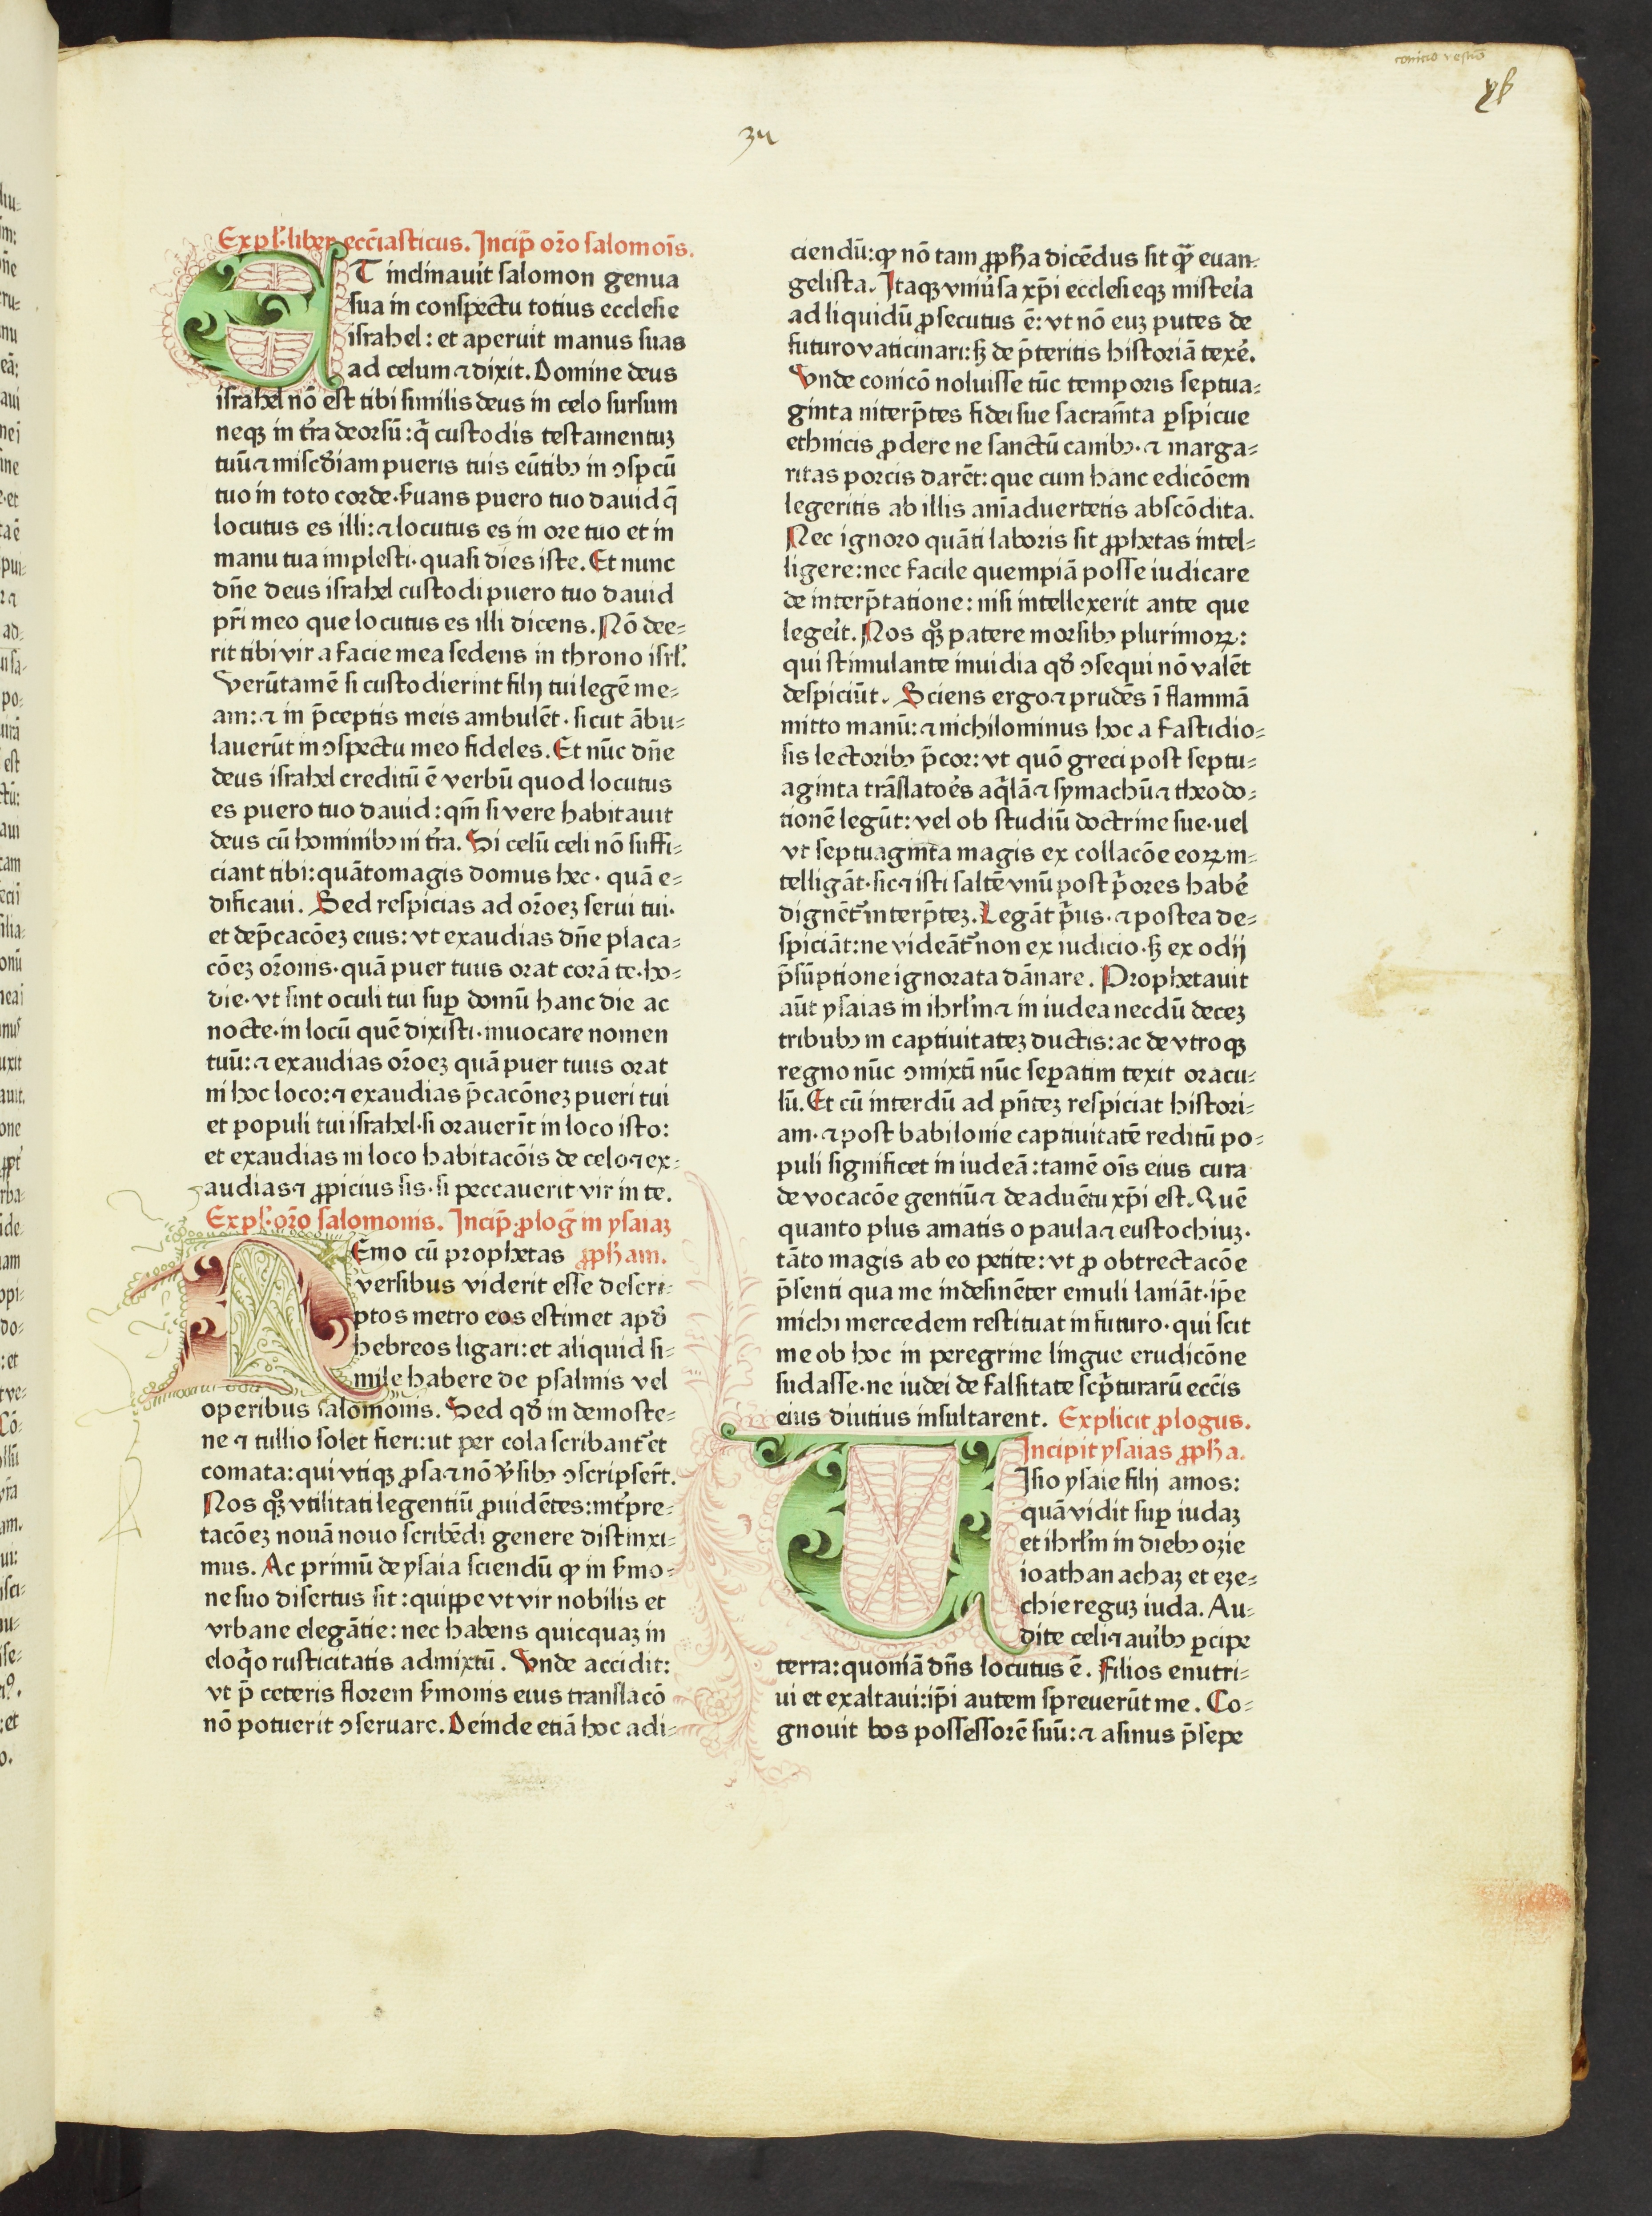 conicio vestio
34
Expl̄·liber ecc̄iasticus. Incip̄ or̄o salomoīs.
ET inclinauit salomon genua
sua in conspectu totius ecclesie
israhel: et aperuit manus suas
ad celum ⁊ dixit. Domine deus
israhel nō est tibi similis deus in celo sursum
neqꝫ in tr̄a deorsū: q̄ custodis testamentuꝫ
tuū ⁊ misc̄diam pueris tuis eūtibꝰ in ꝯspcū
tuo in toto corde· ẜuans puero tuo dauid q̄
locutus es illi: ⁊ locutus es in ore tuo et in
manu tua implesti· quasi dies iste. Et nunc
dn̄e deus israhel custodi puero tuo dauid
pr̄i meo que locutus es illi dicens. Nō dee⸗
rit tibi vir a facie mea sedens in throno isrl̄.
Verūtamē si custodierint filij tui legē me⸗
am: ⁊ in p̄ceptis meis ambulēt· sicut ābu⸗
lauerūt in ꝯspectu meo fideles. Et nūc dn̄e
deus israhel creditū ē verbū quod locutus
es puero tuo dauid: qm̄ si vere habitauit
deus cū hominibꝰ in tr̄a. Si celū celi nō suffi⸗
ciant tibi: quātomagis domus hec· quā e⸗
dificaui. Sed respicias ad or̄oeꝫ serui tui·
et dep̄cacōeꝫ eius: vt exaudias dn̄e placa⸗
cōeꝫ or̄onis· quā puer tuus orat corā te· ho⸗
die· vt sint oculi tui suꝑ domū hanc die ac
nocte· in locū quē dixisti· inuocare nomen
tuū: ⁊ exaudias or̄oeꝫ quā puer tuus orat
in hoc loco: ⁊ exaudias p̄cacōneꝫ pueri tui
et populi tui israhel· si orauerīt in loco isto:
et exaudias in loco habitacōis de celo ⁊ ex⸗
audias ⁊ ꝓpicius sis· si peccauerit vir in te.
Expl̄· or̄o salomonis. Incip̄· ꝓloḡ in ysaiaꝫ
NEmo cū prophetas ꝓpħam.
versibus viderit esse descri⸗
ptos metro eos estimet apđ
hebreos ligari: et aliquid si⸗
mile habere de psalmis vel
operibus salomonis. Sed qđ in demoste⸗
ne ⁊ tullio solet fieri: ut per cola scribant᷑ et
comata: qui vtiqꝫ ꝓsa ⁊ nō v̓sibꝰ ꝯscripser̄t.
Nos qꝫ vtilitati legentiū ꝓuidētes: int̓pre⸗
tacōeꝫ nouā nouo scribēdi genere distinxi⸗
mus. Ac primū de ysaia sciendū ꝙ in ẜmo⸗
ne suo disertus sit: quippe vt vir nobilis et
vrbane elegātie: nec habens quicquaꝫ in
eloq̄o rusticitatis admixtū. Vnde accidit:
vt p̄ ceteris florem ẜmonis eius translacō
nō potuerit ꝯseruare. Deinde etiā hoc adi⸗
ciendū: ꝙ nō tam ꝓpħa dicēdus sit q̄ȝ euan⸗
gelista. Itaqꝫ vniũsa xp̄i ecclesieqꝫ misteīa
ad liquidū ꝓsecutus ē: vt nō euꝫ putes de
futuro vaticinari: sꝫ de p̄teritis historiā texē.
Vnde conicō noluisse tūc temporis septua⸗
ginta niterp̄tes fidei sue sacram̄ta ꝑspicue
ethnicis ꝓdere ne sanctū canibꝰ· ⁊ marga⸗
ritas porcis darēt: que cum hanc edicōem
legeritis ab illis anīaduertetis abscōdita.
Nec ignoro quāti laboris sit ꝓphetas intel⸗
ligere: nec facile quempiā posse iudicare
de interp̄tatione: nisi intellexerit ante que
legeīt. Nos qꝫ patere morsibꝰ plurimoꝝ:
qui stimulante inuidia qđ ꝯsequi nō valēt
despiciūt. Sciens ergo ⁊ prudēs ī flammā
mitto manū: ⁊ nichilominus hoc a fastidio⸗
sis lectoribꝰ p̄cor: vt quō greci post septu⸗
aginta trāslatoēs aq̄lā ⁊ symachū ⁊ theodo⸗
tionē legūt: vel ob studiū doctrine sue· uel
vt septuaginta magis ex collacōe eoꝝ in⸗
telligāt· sic ⁊ isti saltē vnū post p̄ores habē
dignēt᷑ interp̄teꝫ. Legāt p̄us· ⁊ postea de⸗
spiciāt: ne videāt᷑ non ex iudicio· sꝫ ex odij
p̄sūptione ignorata dānare. Prophetauit
aūt ysaias in ihrl̄m ⁊ in iudea necdū deceꝫ
tribubꝰ in captiuitateꝫ ductis: ac de vtroqꝫ
regno nūc ꝯmixtī nūc sepatim texit oracu⸗
lū. Et cū interdū ad pn̄teꝫ respiciat histori⸗
am· ⁊ post babilonie captiuitatē reditū po⸗
puli significet in iudeā: tamē oīs eius cura
de vocacōe gentiū ⁊ de aduētu xp̄i est. Quē
quanto plus amatis o paula ⁊ eustochiuꝫ·
tāto magis ab eo petite: vt ꝓ obtrectacōe
p̄senti qua me indesinēter emuli laniāt· ip̄e
michi mercedem restituat in futuro· qui scit
me ob hoc in peregrine lingue erudicōne
sudasse· ne iudei de falsitate scp̄turarū ecc̄is
eius diutius insultarent. Explicit ꝓlogus.
Incipit ysaias ꝓpħa.
VIsio ysaie filij amos:
quā vidit suꝑ iudaꝫ
et ihrl̄m in diebꝰ ozie
ioathan achaꝫ et eze⸗
chie reguꝫ iuda. Au⸗
dite celi ⁊ auībꝰ ꝑcipe
terra: quoniā dn̄s locutus ē. Filios enutri⸗
ui et exaltaui: ip̄i autem spreuerūt me. Co⸗
gnouit bos possessorē suū: ⁊ asinus p̄sepe